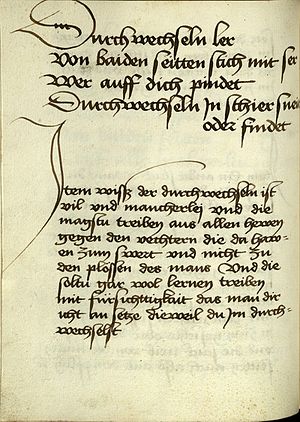 Durchwechseln ler
Von baiden seitten stich mit ser
Wer auff dich pindet
Durchwechseln In schier
oder findet
Item wiss der durchwechseln ist
vil vnd mancherlei vnd die
magstu treiben aus allen hewen
gegen den vechtern die da haw-
en zum swert vnd nicht zu
den plössen des mans Vnd die
soltu gar wol lernen treiben
mit fürsichttigkait das man dir
icht an setze dieweil du Im durch-
wechselst